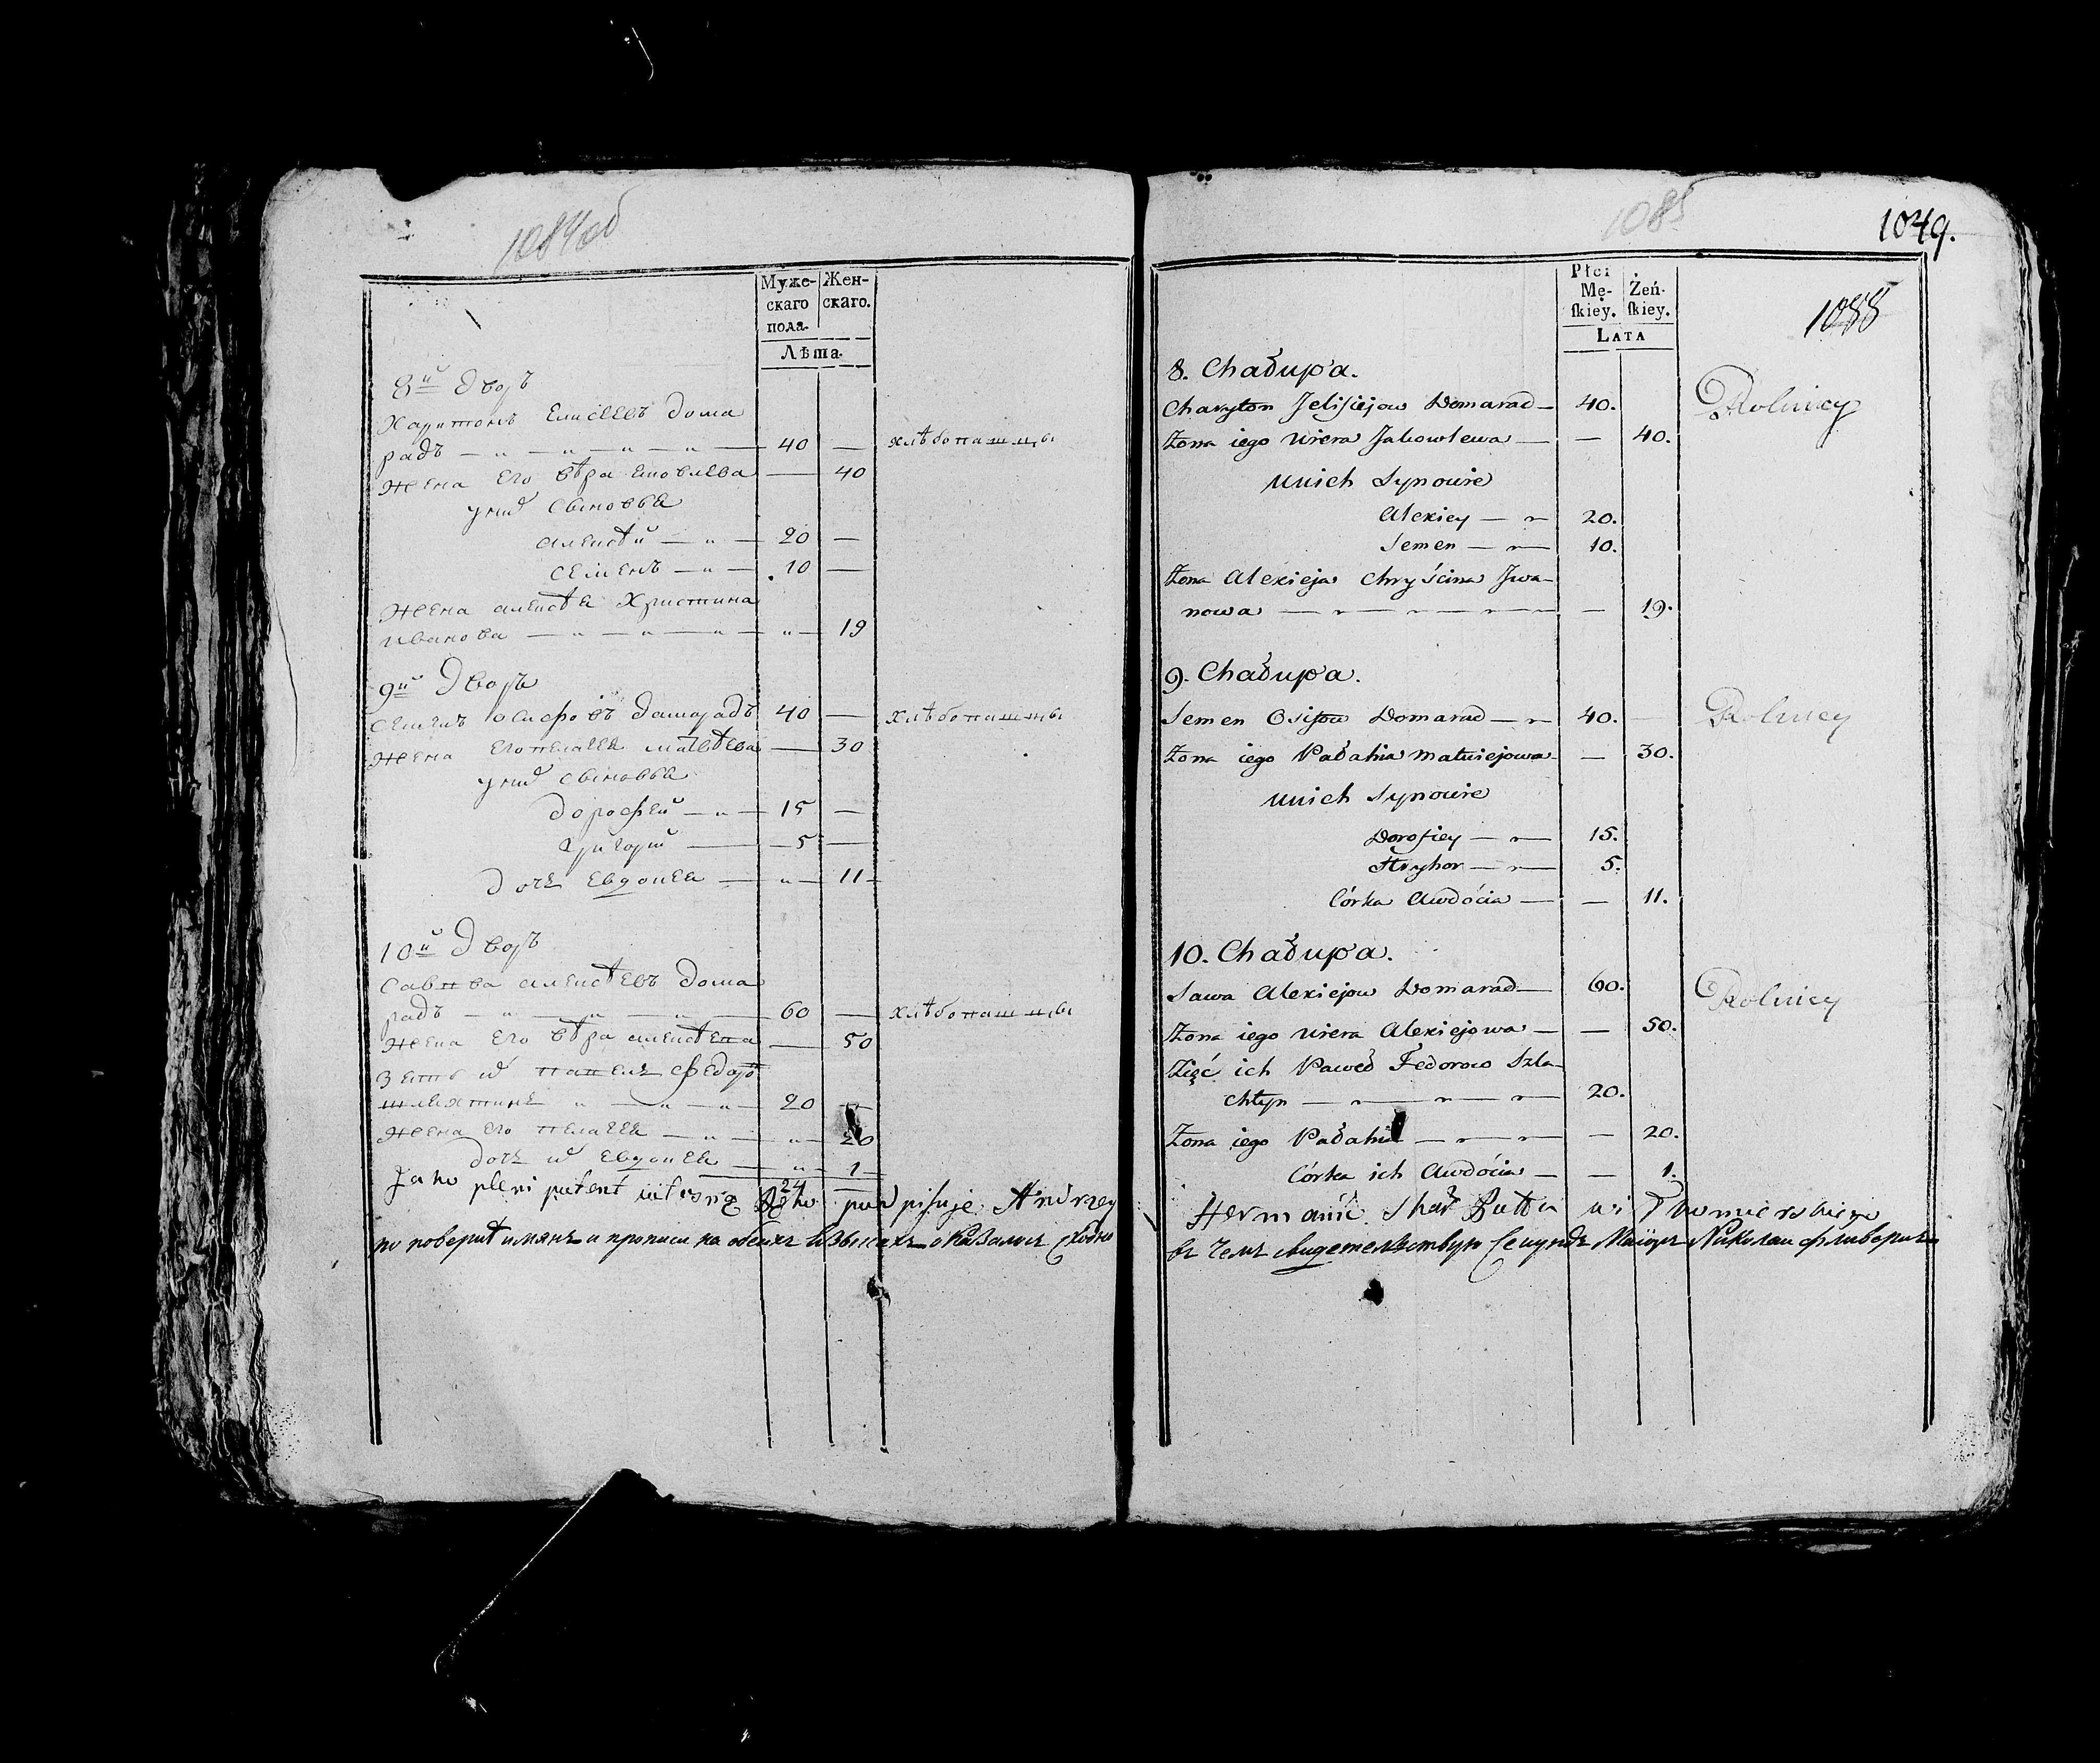 1084об
Муже-
скаго
пола.
Жен-
скаго.
Лѣта.
8й Дворъ
Харитонъ Елисеевъ Дома
радъ — 40 — хлѣбопашцы
Жена его вѣра яковлева — 40
у них сыновья
алексѣй — 20 —
семенъ — 10 —
Жена алексѣя Христина
иванова — 19
9й Дворъ
семенъ осифовъ Домарадъ 40 — хлѣбопашцы
жена его пелагея матвѣева — 30
у них сыновья
Дорофей — 15 —
Григорий — 5 —
Дочь Евдокея — 11
10й Дворъ
Савва алексѣевъ Дома
радъ — 60 — хлѣбопашцы
жена его вѣра алексѣева — 50
Зять их павелъ Федоро
шляхтинъ — 20 —
жена его пелагея — 20
Дочь их Евдокея — 1
24
Jako plenipotent własną Ręko podpisuję Andrzey
по поверкѣ имянъ и прописи на обеихъ языкахъ оказалось сходно
1085
1049.
1088
Płci
Mę-
ſkiey.
Żeń-
ſkiey.
LATA
8. Chałupa.
Charyton Jelisiejow Domarad — 40. Rolnicy
Żona iego Wiera Jakowlewa — — 40.
u nich Synowie
Alexiey — 20.
Semen — 10.
Żona Alexieja Chryścina Jwa-
nowa — — 19.
9. Chałupa.
Semen Osipow Domarad — 40. — Rolnicy
Żona iego Pałahia Matwiejowa — 30.
u nich Synowie
Dorofiey — 15.
Hryhor — 5.
Córka Awdócia — — 11.
10. Chałupa.
Sawa Alexiejow Domarad — 60. Rolnicy
Żona iego Wiera Alexiejowa — — 50.
Zięć ich Paweł Fedorow Szla-
chtyn — 20.
Żona iego Pałahia — — 20.
Córka ich Awdócia — — 1.
въ чемъ свидетельствую Секундъ Маіоръ Николаи